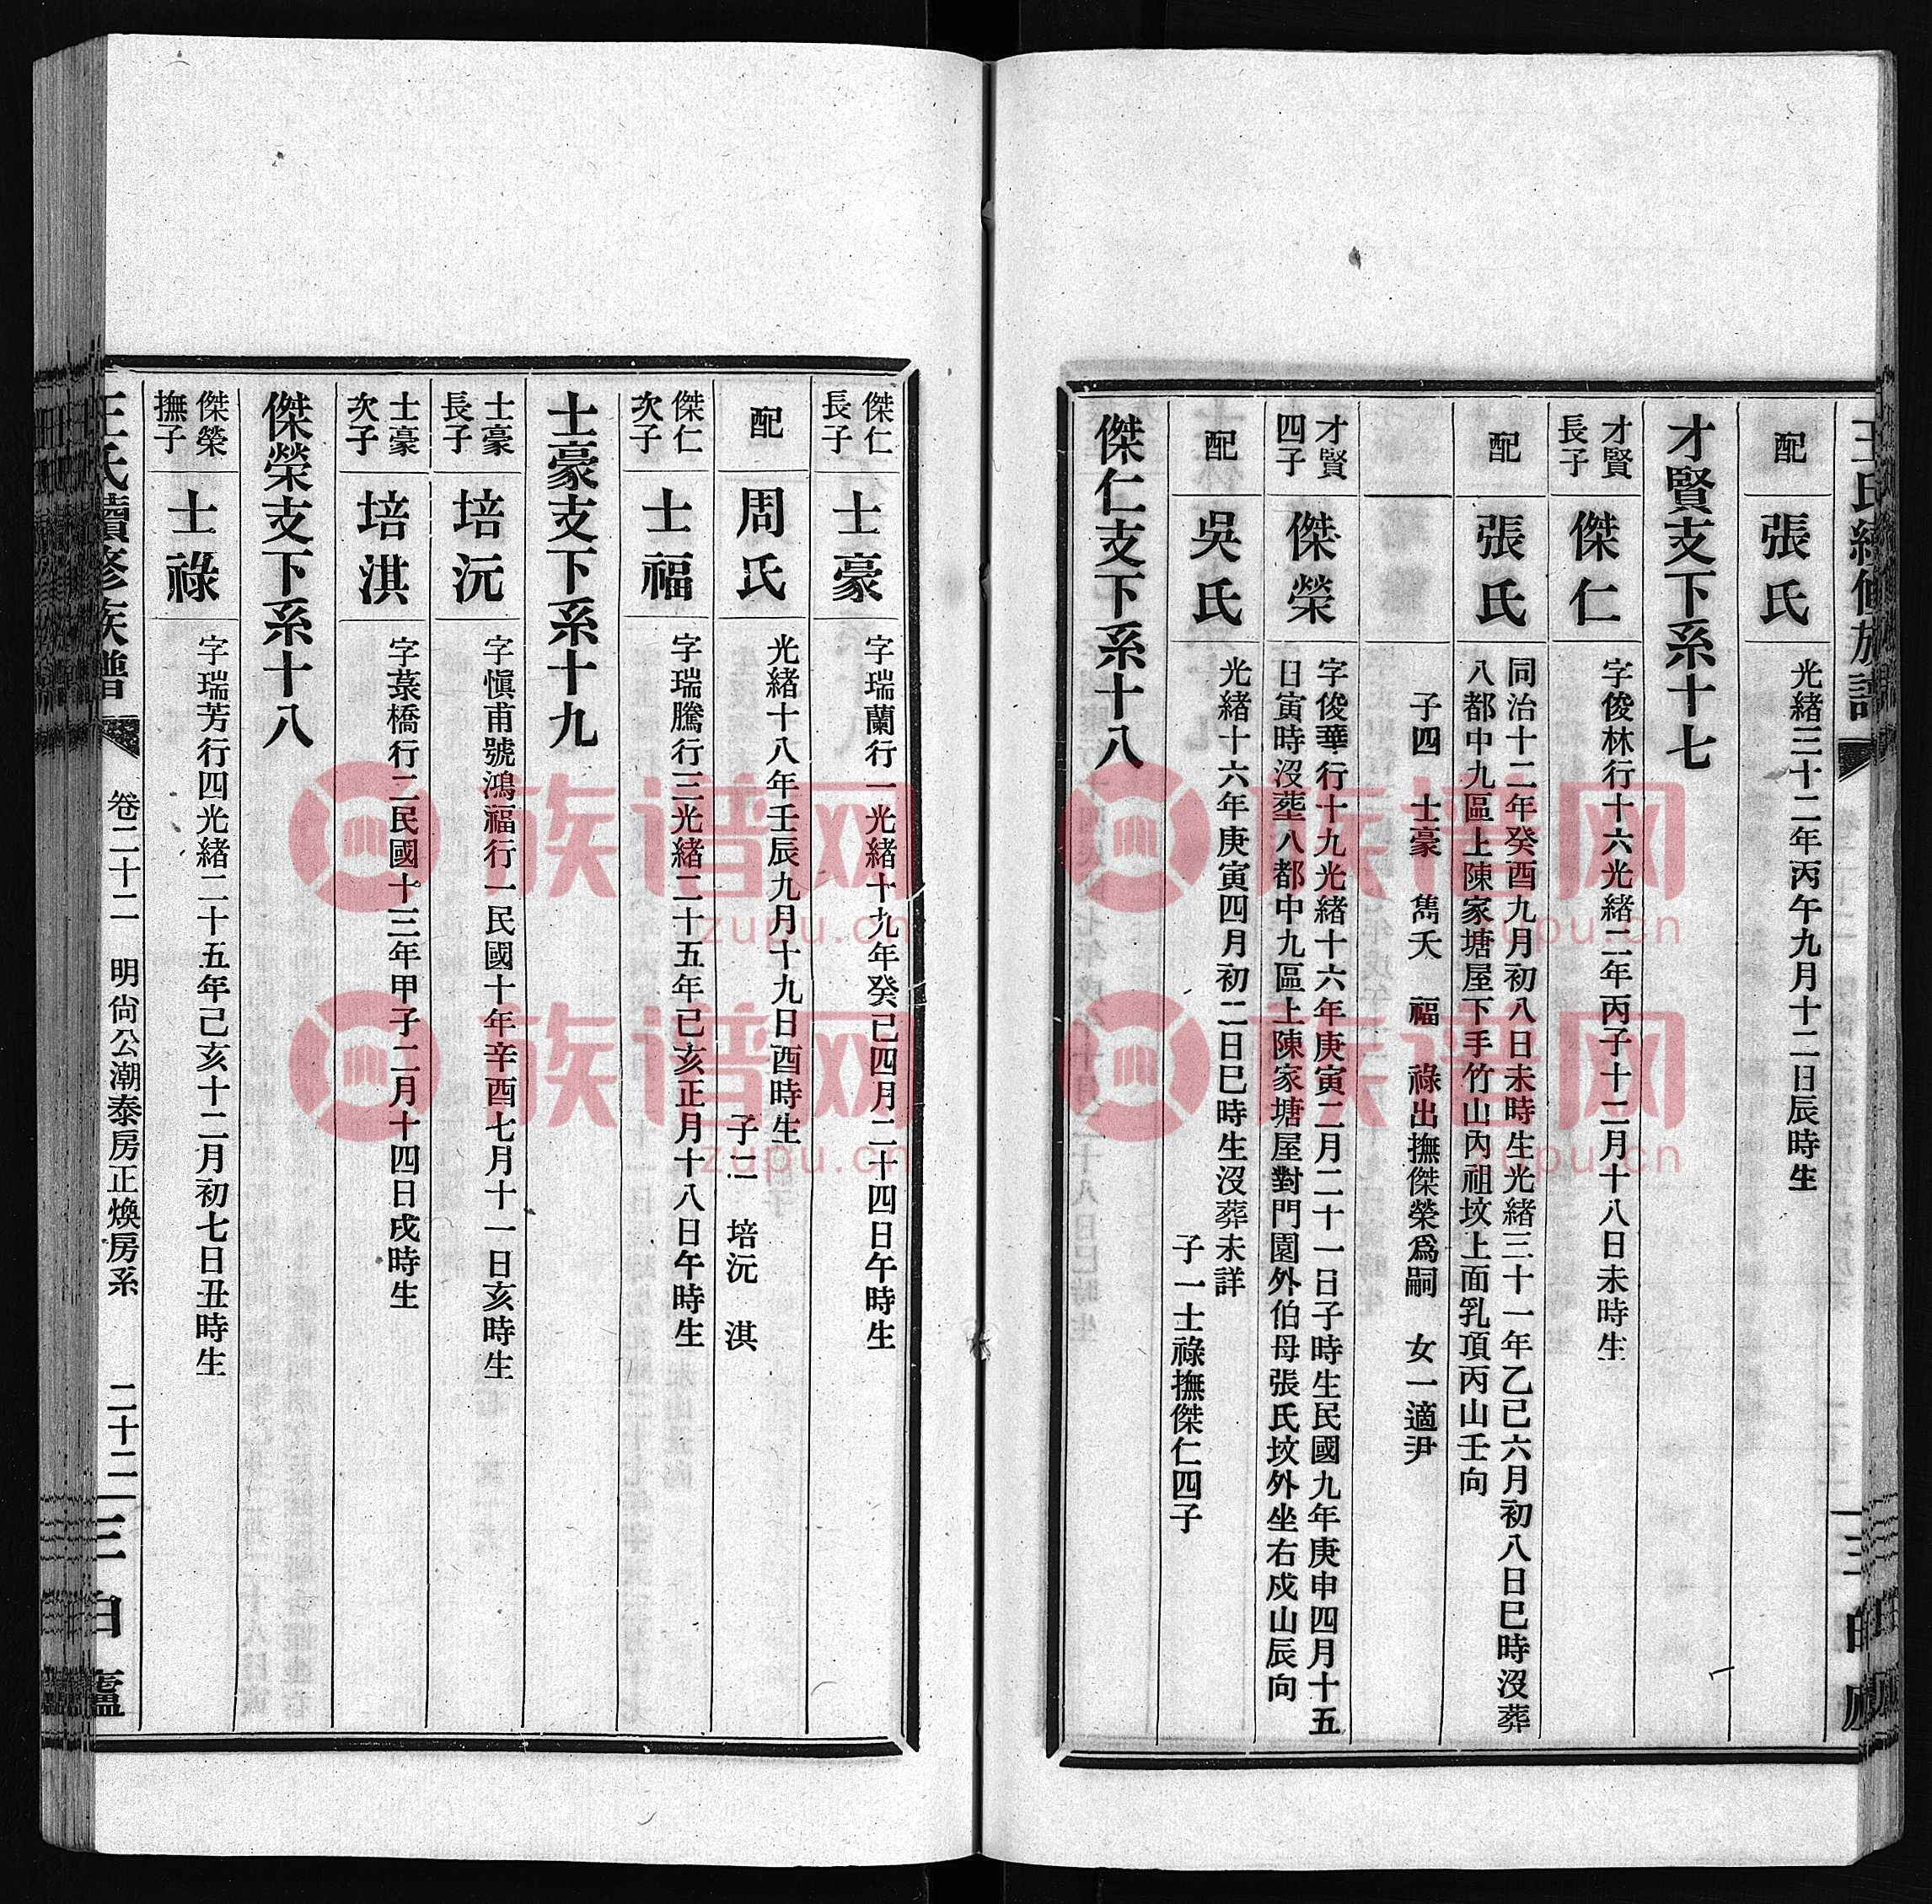 王氏續修族譜
配
張氏
光緒三十二年丙午九月十二日辰時生
才賢支下系十七
才賢
長子
傑仁
字俊林行十六光緒二年丙子十二月十八日未時生
配
張氏
同治十二年癸酉九月初八日未時生光緒三十一年乙巳六月初八日巳時沒葬
八都中九區上陳家塘屋下手竹山內祖坟上面乳頂丙山壬向
子四 士豪 雋夭 福 祿出撫傑榮爲嗣 女一適尹
才賢
四子
傑榮
字俊華行十九光緒十六年庚寅二月二十一日子時生民國九年庚申四月十五
日寅時沒塟八都中九區上陳家塘屋對門園外伯母張氏坟外坐右戍山辰向
配
吳氏
光緒十六年庚寅四月初二日巳時生沒葬未詳
子一士祿撫傑仁四子
傑仁支下系十八
傑仁
長子
士豪
字瑞蘭行一光緒十九年癸巳四月二十四日午時生
配
周氏
光緒十八年壬辰九月十九日酉時生
子二 培沅 淇
傑仁
次子
士福
字瑞騰行三光緒二十五年己亥正月十八日午時生
士豪支下系十九
士豪
長子
培沅
字愼甫號鴻福行一民國十年辛酉七月十一日亥時生
士豪
次子
培淇
字菉橋行二民國十三年甲子二月十四日戌時生
傑榮支下系十八
傑榮
撫子
士祿
字瑞芳行四光緒二十五年己亥十二月初七日丑時生
王氏續修族譜
卷二十二 明尙公潮泰房正煥房系 二十二
族谱网
zupu.cn
族谱网
zupu.cn
族谱网
zupu.cn
族谱网
zupu.cn